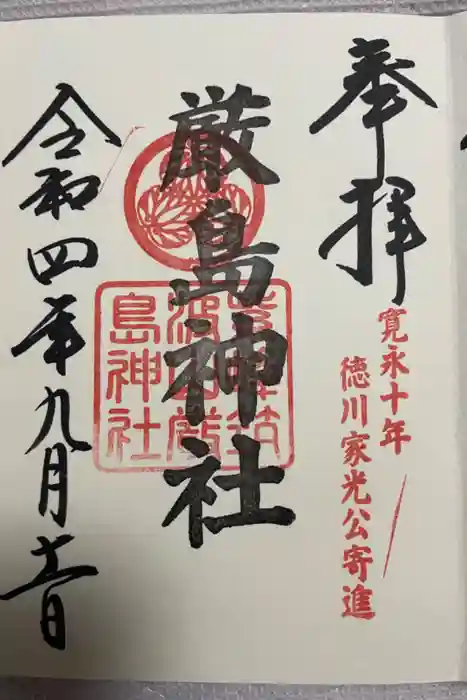 奉拝
寛永十年
徳川家光公寄進
厳島神社
常陸筑
波山厳
島神社
令和四年九月十一日